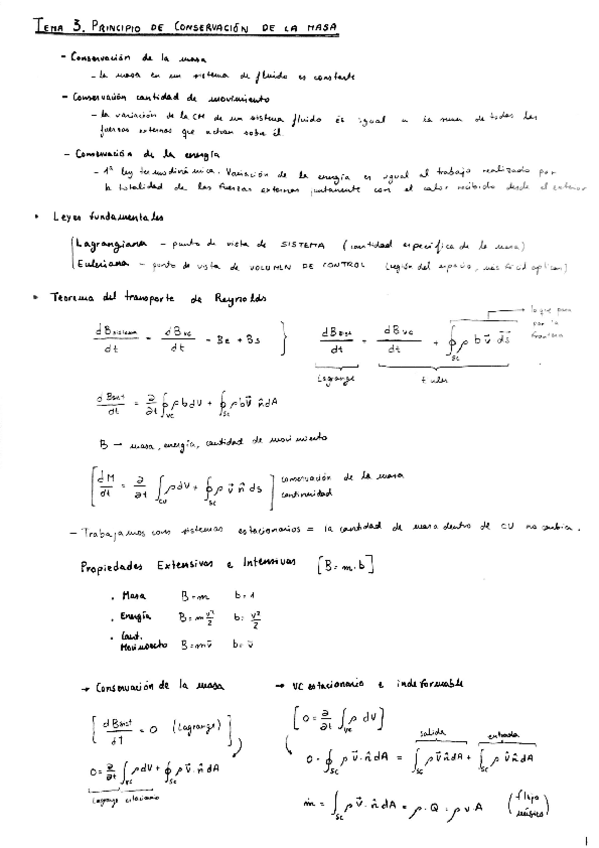 TEMA 3. PRINCIPIO DE CONSERVACIÓN DE LA MASA
- Conservación de la masa
- la masa en un sistema de fluido es constante
- Conservación cantidad de movimiento
- la variación de la CM de un sistema fluido es igual a la suma de todas las
fuerzas externas que actúan sobre él.
- Conservación de la energía
- 1ª ley termodinámica. Variación de la energía es igual al trabajo realizado por
la totalidad de las fuerzas externas juntamente con el calor recibido desde el exterior
• Leyes fundamentales
Lagrangiana - punto de vista de SISTEMA (cantidad específica de la masa)
Euleriana - punto de vista de VOLUMEN DE CONTROL (región del espacio, más fácil aplicar)
• Teorema del transporte de Reynolds
dBsistema/dt = dBvc/dt - Be + Bs } dBsist/dt = dBvc/dt + ∮sc ρ b v⃗ ds⃗
lo que pasa por la frontera
Lagrange Euler
dBsist/dt = ∂/∂t ∮vc ρ b dV + ∮sc ρ b v⃗ n̂ dA
B → masa, energía, cantidad de movimiento
[dM/dt = ∂/∂t ∫cv ρ dV + ∮sc ρ v⃗ n̂ ds] conservación de la masa
continuidad
- Trabajamos con sistemas estacionarios = la cantidad de masa dentro de CV no cambia.
Propiedades Extensivas e Intensivas [B = m·b]
• Masa B = m b = 1
• Energía B = m v²/2 b = v²/2
• Cant. Movimiento B = m v⃗ b = v⃗
→ Conservación de la masa → VC estacionario e indeformable
[dBsist/dT = 0 (Lagrange)] [0 = ∂/∂t ∫vc ρ dV]
salida entrada
0 = ∂/∂t ∫vc ρ dV + ∮sc ρ v⃗·n̂ dA 0 = ∮sc ρ v⃗·n̂ dA = ∫sc ρ v⃗ n̂ dA + ∫sc ρ v⃗ n̂ dA
Lagrange estacionario
ṁ = ∫sc ρ v⃗·n̂ dA = ρ·Q = ρ v A (flujo másico)
1